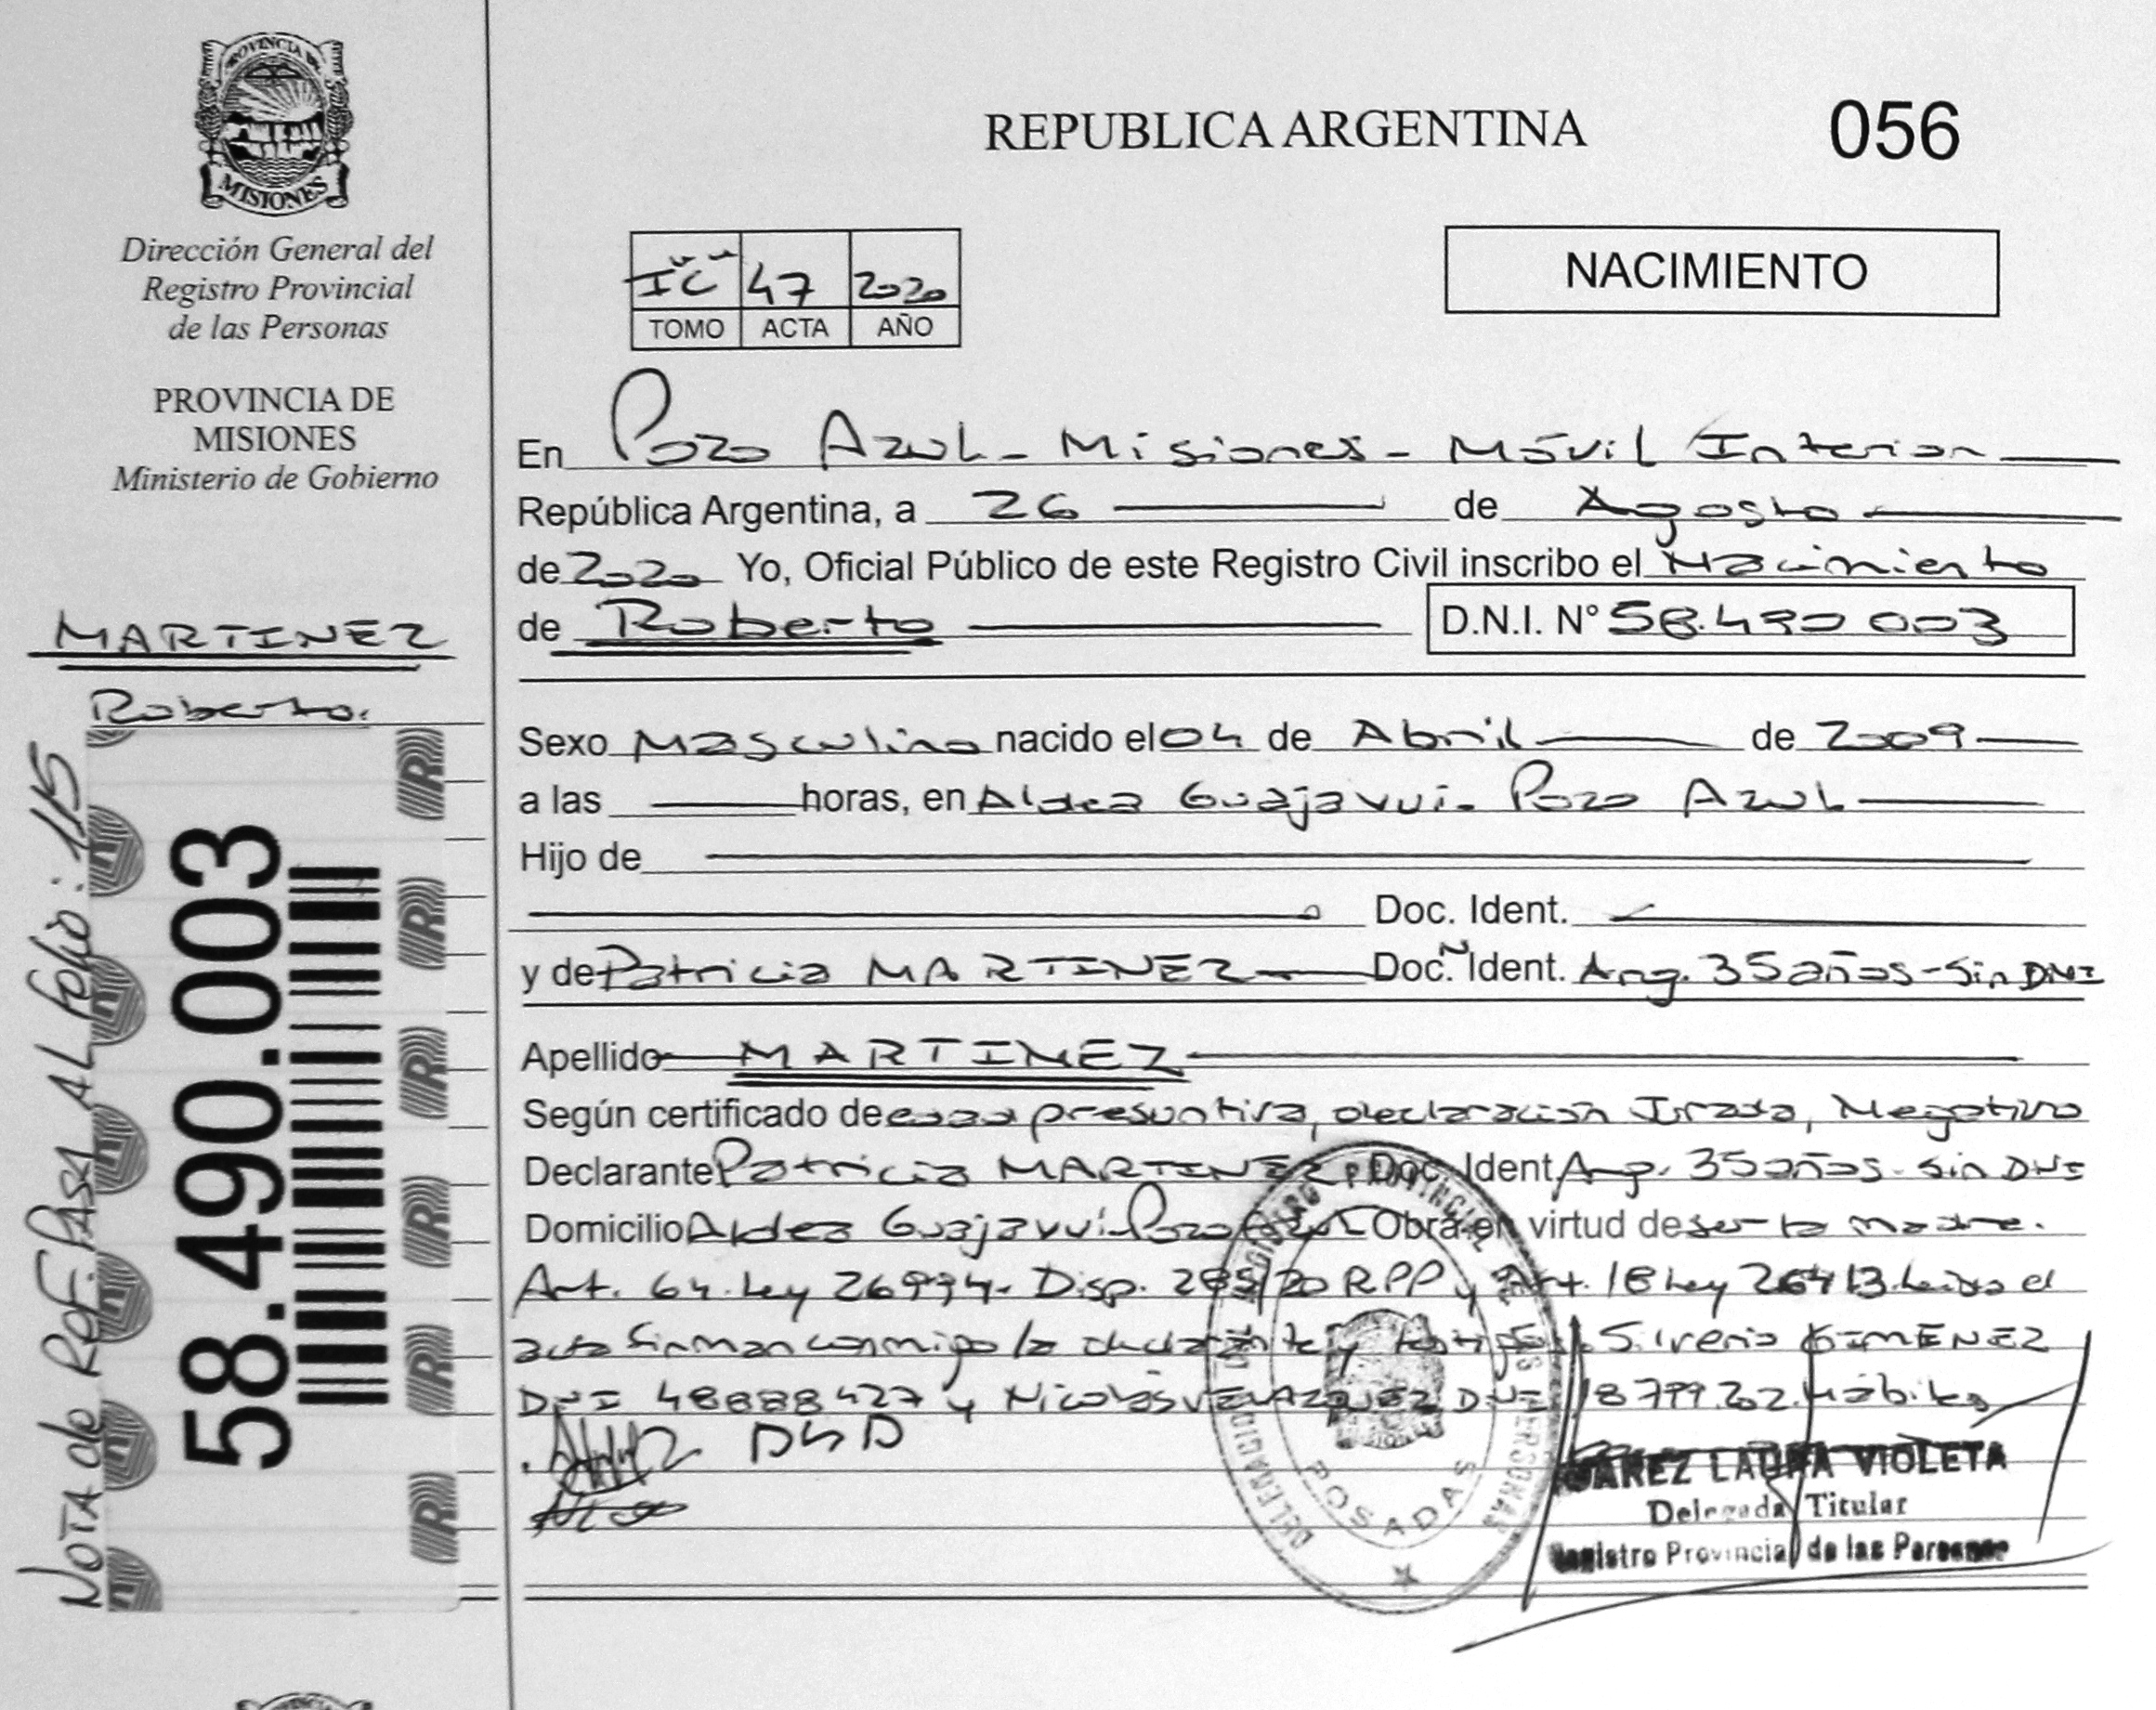 PROVINCIA DE
MISIONES
Dirección General del
Registro Provincial
de las Personas
PROVINCIA DE
MISIONES
Ministerio de Gobierno
MARTINEZ
Roberto.
NOTA de REF. PASA AL Folio: 115
58.490.003
REPUBLICA ARGENTINA
056
"C" 47 2020
TOMO ACTA AÑO
NACIMIENTO
En Pozo Azul - Misiones - Móvil Interior
República Argentina, a 26 de Agosto
de 2020 Yo, Oficial Público de este Registro Civil inscribo el Nacimiento
de Roberto D.N.I. N° 58.490 003
Sexo Masculino nacido el 04 de Abril de 2009
a las horas, en Aldea Guajavui. Pozo Azul
Hijo de
Doc. Ident.
y de Patricia MARTINEZ Doc. Ident. Arg. 35 años - Sin DNI
Apellido MARTINEZ
Según certificado de edad presuntiva, declaración Jurada, Negativo
Declarante Patricia MARTINEZ Doc. Ident Arg. 35 años - Sin DNI
Domicilio Aldea Guajavui Pozo Azul Obra en virtud de ser la madre.
Art. 64. Ley 26994. Disp. 285/20 RPP y Art. 18 Ley 26413. Leida el
acta firman conmigo la declarante y testigos. Silverio GIMENEZ
DNI 48888427 y Nicolás VELAZQUEZ DNI Hábiles
REGISTRO PROVINCIAL DE LAS PERSONAS
POSADAS
LAURA VIOLETA
Delegada Titular
Registro Provincial de las Personas